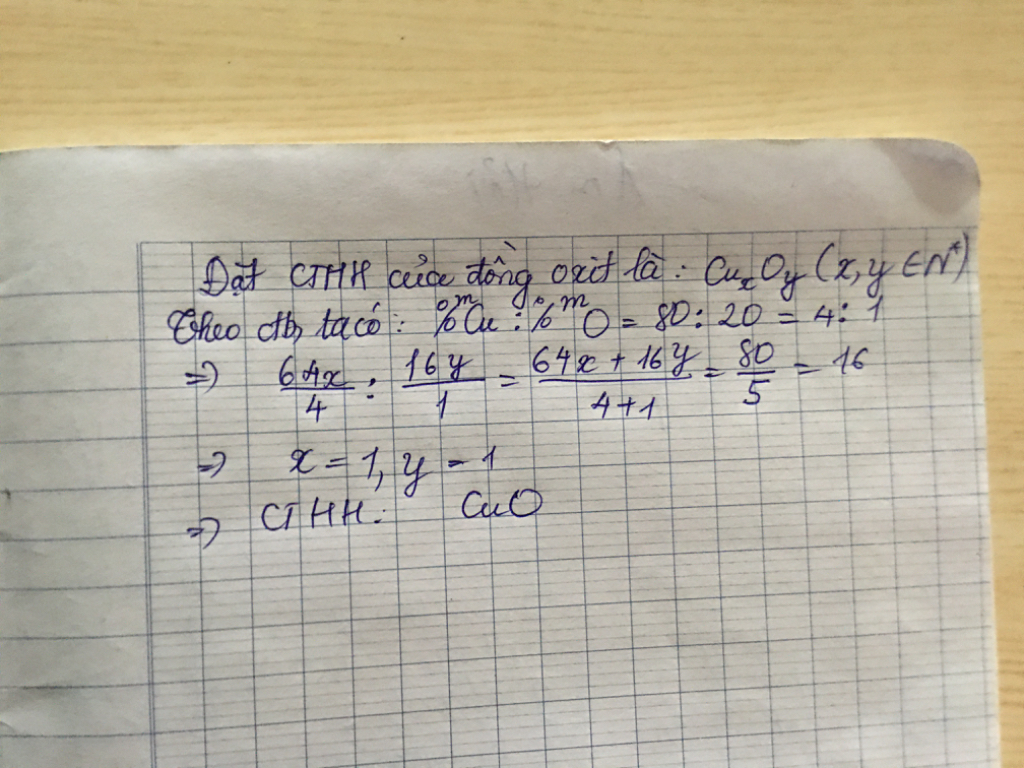 Đặt CTHH của đồng oxit là: CuₓOᵧ (x, y ∈ N*)
Theo đb, ta có: %mCu : %mO = 80 : 20 = 4 : 1
=> 64x/4 : 16y/1 = (64x + 16y)/(4+1) = 80/5 = 16
=> x = 1, y = 1
=> CTHH: CuO